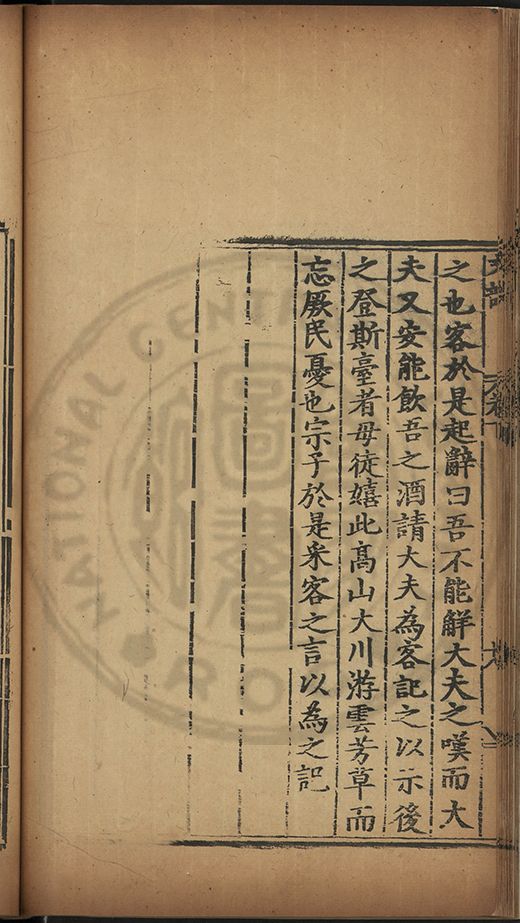 之也客於是起辭曰吾不能觧大夫之嘆而大
夫又安能飲吾之酒請大夫為客記之以示後
之登斯臺者毋徒嬉此髙山大川游雲芳草而
忘厥民憂也宗子於是采客之言以為之記